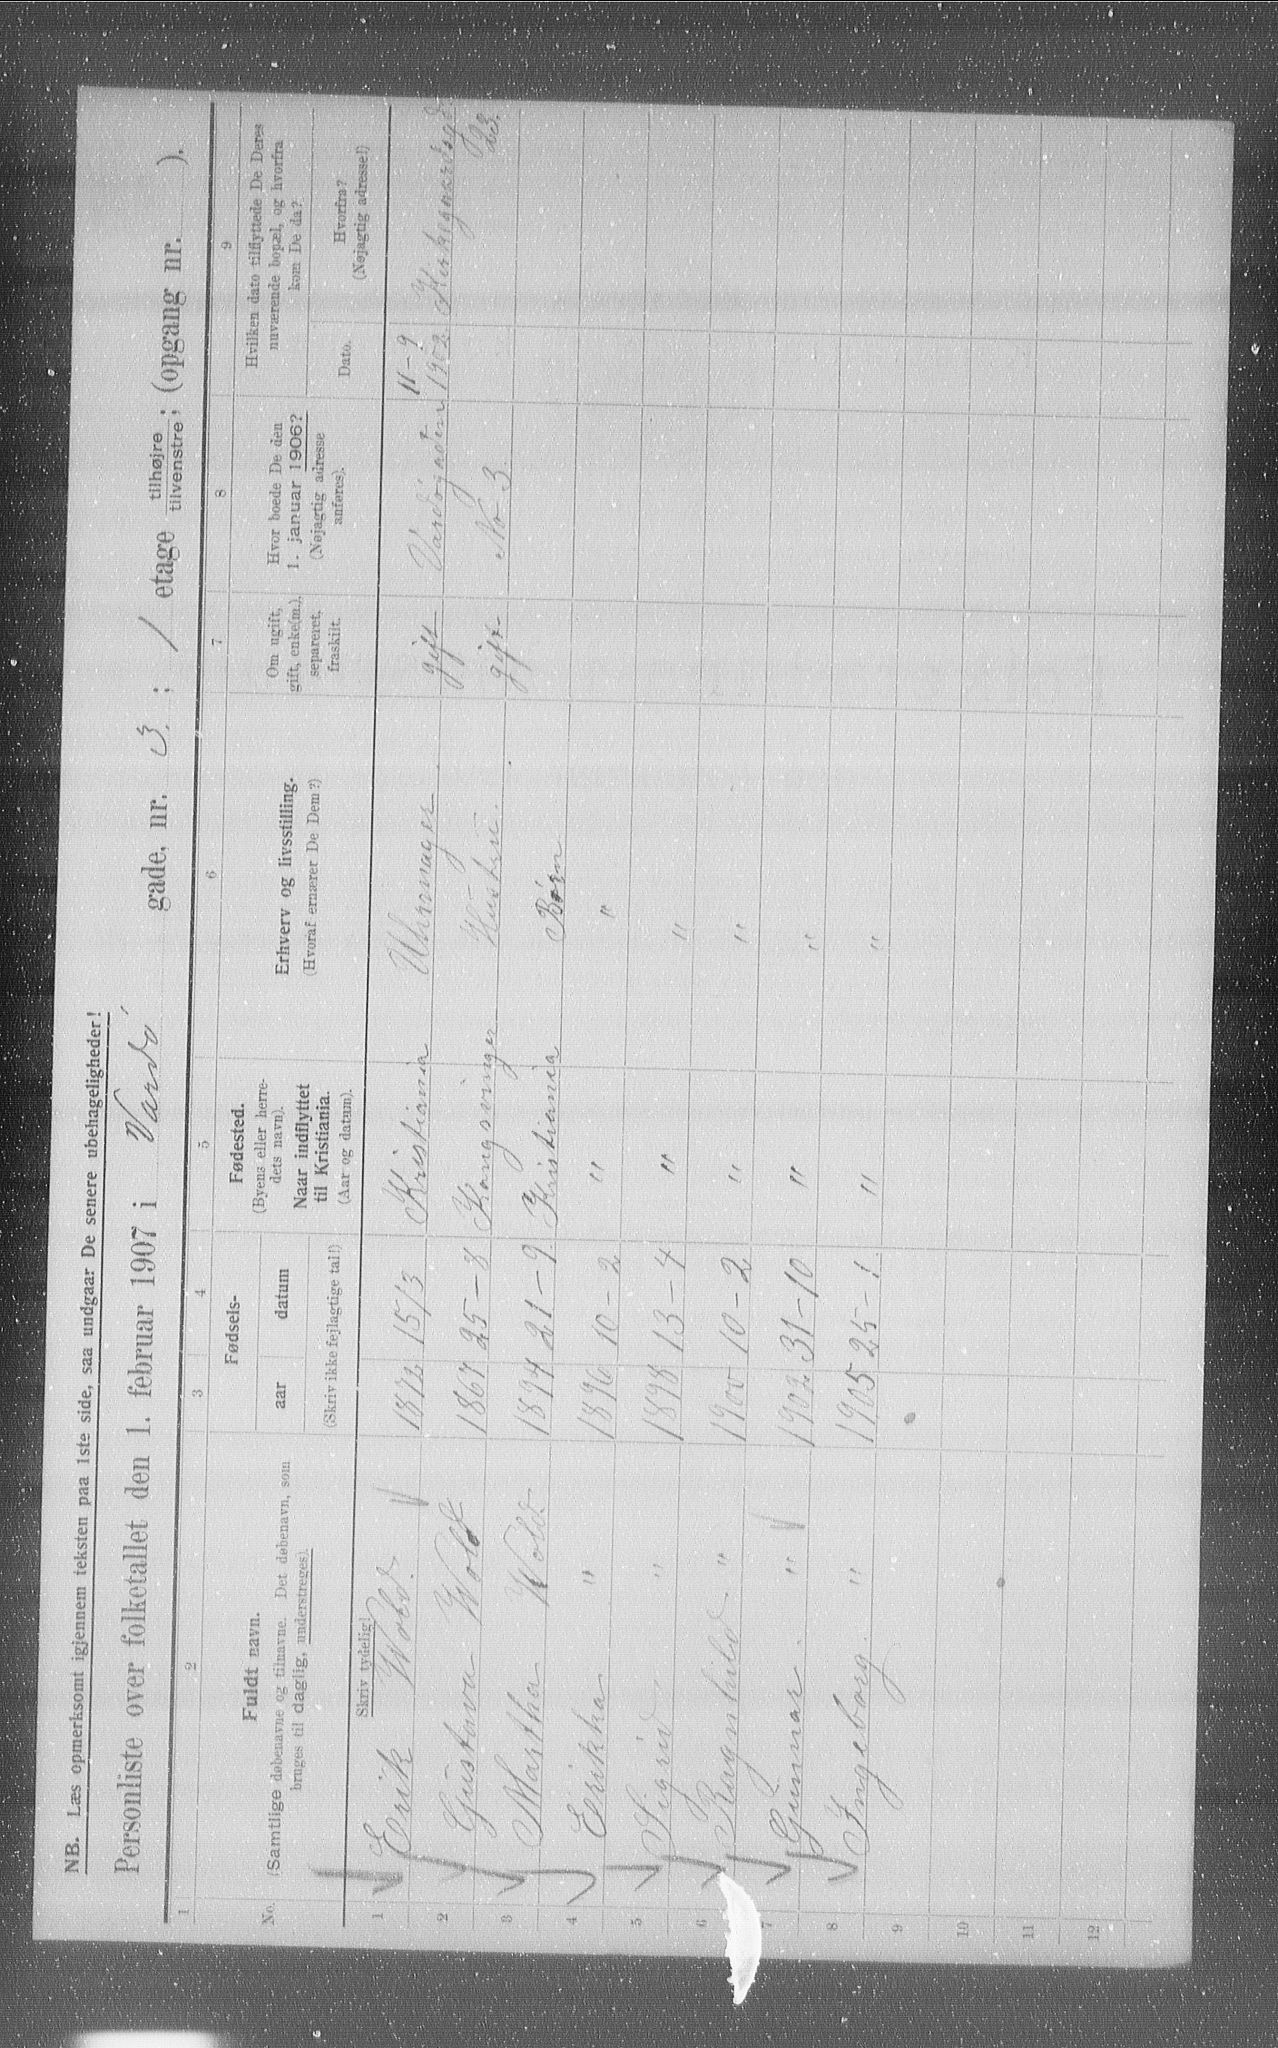 NB. Læs opmerksomt igjennem teksten paa 1ste side, saa undgaar De senere ubehageligheder!
Personliste over folketallet den 1. februar 1907 i Vardö gade, nr. 3. ; 1 etage tilhøjre / tilvenstre ; (opgang nr. ).
1 2 3 4 5 6 7 8 9
No.
Fuldt navn.
(Samtlige døbenavne og tilnavne. Det døbenavn, som
bruges til daglig, understreges).
Skriv tydelig!
Fødsels-
aar datum
(Skriv ikke fejlagtige tal!)
Fødested.
(Byens eller herre-
dets navn).
Naar indflyttet
til Kristiania.
(Aar og datum).
Erhverv og livsstilling.
(Hvoraf ernærer De Dem?)
Om ugift,
gift, enke(m.),
separeret,
fraskilt.
Hvor boede De den
1. januar 1906?
(Nøjagtig adresse
anføres).
Hvilken dato tilflyttede De Deres
nuværende bopæl, og hvorfra
kom De da?
Dato.
Hvorfra?
(Nøjagtig adresse!)
1 Erik Wold. 1872 15/3 Kristiania Uhrmager gift Vardøgaden 11-9 1902 Kirkegaardsgd
2 Gustava Wold 1867 25-8 Kongsvinger Hustru. gift No 3. 23.
3 Martha Wold 1894 21-9 Kristiania Børn
4 Erikka " 1896 10-2 " "
5 Sigrid " 1898 13-4 " "
6 Ragnhild " 1900 10-2 " "
7 Gunnar " 1902 31-10 " "
8 Ingeborg. " 1905 25-1 " "
9
10
11
12